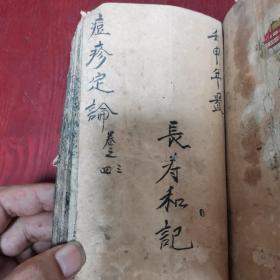 壬申年置
長寿和記
痘疹定論
卷之三四